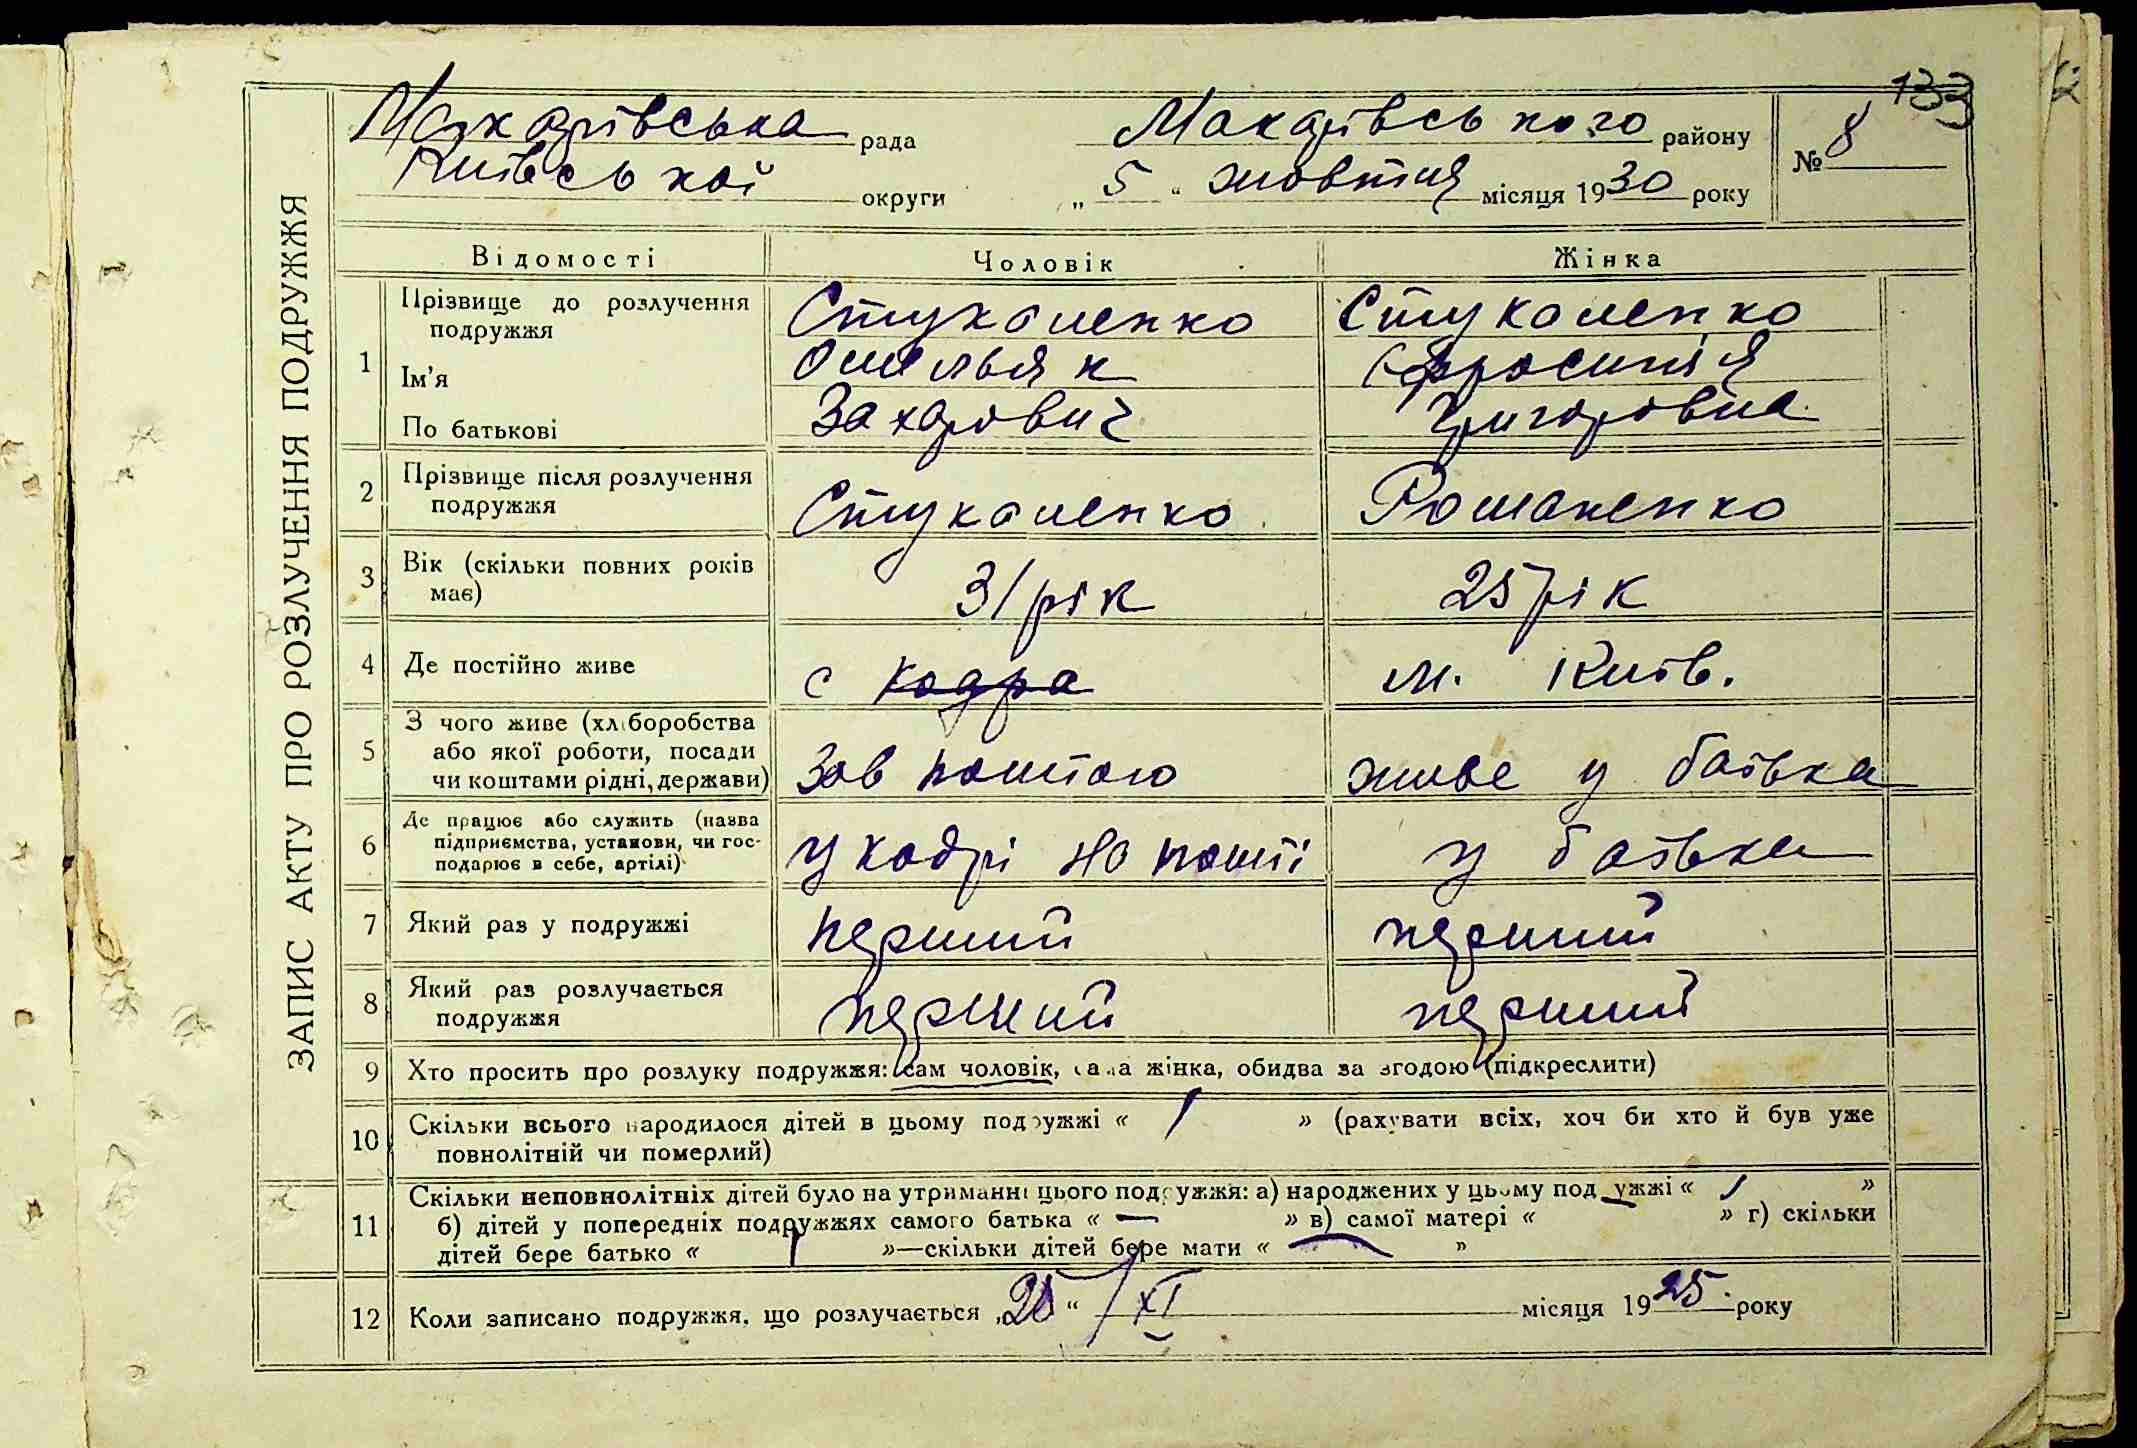 133
Макарівська рада Макарівського району № 8
Київської округи „ 5 “ жовтня місяця 1930 року
ЗАПИС АКТУ ПРО РОЗЛУЧЕННЯ ПОДРУЖЖЯ
Відомості Чоловік Жінка
1 Прізвище до розлучення подружжя Стукаленко Стукаленко
Ім'я Омельян Єфросинія
По батькові Захарович Григоровна
2 Прізвище після розлучення подружжя Стукаленко Романенко
3 Вік (скільки повних років має) 31 рік 25 рік
4 Де постійно живе с Кодра м. Київ.
5 З чого живе (хліборобства або якої роботи, посади чи коштами рідні, держави) Зав поштою живе у батька
6 Де працює або служить (назва підприємства, установи, чи господарює в себе, артілі) у кодрі на пошті у батька
7 Який раз у подружжі перший перший
8 Який раз розлучається подружжя перший перший
9 Хто просить про розлуку подружжя: сам чоловік, сама жінка, обидва за згодою (підкреслити)
10 Скільки всього народилося дітей в цьому подружжі « 1 » (рахувати всіх, хоч би хто й був уже
повнолітній чи померлий)
11 Скільки неповнолітніх дітей було на утриманні цього подружжя: а) народжених у цьому подружжі « 1 »
б) дітей у попередніх подружжях самого батька « — » в) самої матері « » г) скільки
дітей бере батько « 1 »—скільки дітей бере мати « — »
12 Коли записано подружжя, що розлучається „ “ / XI місяця 1925 року